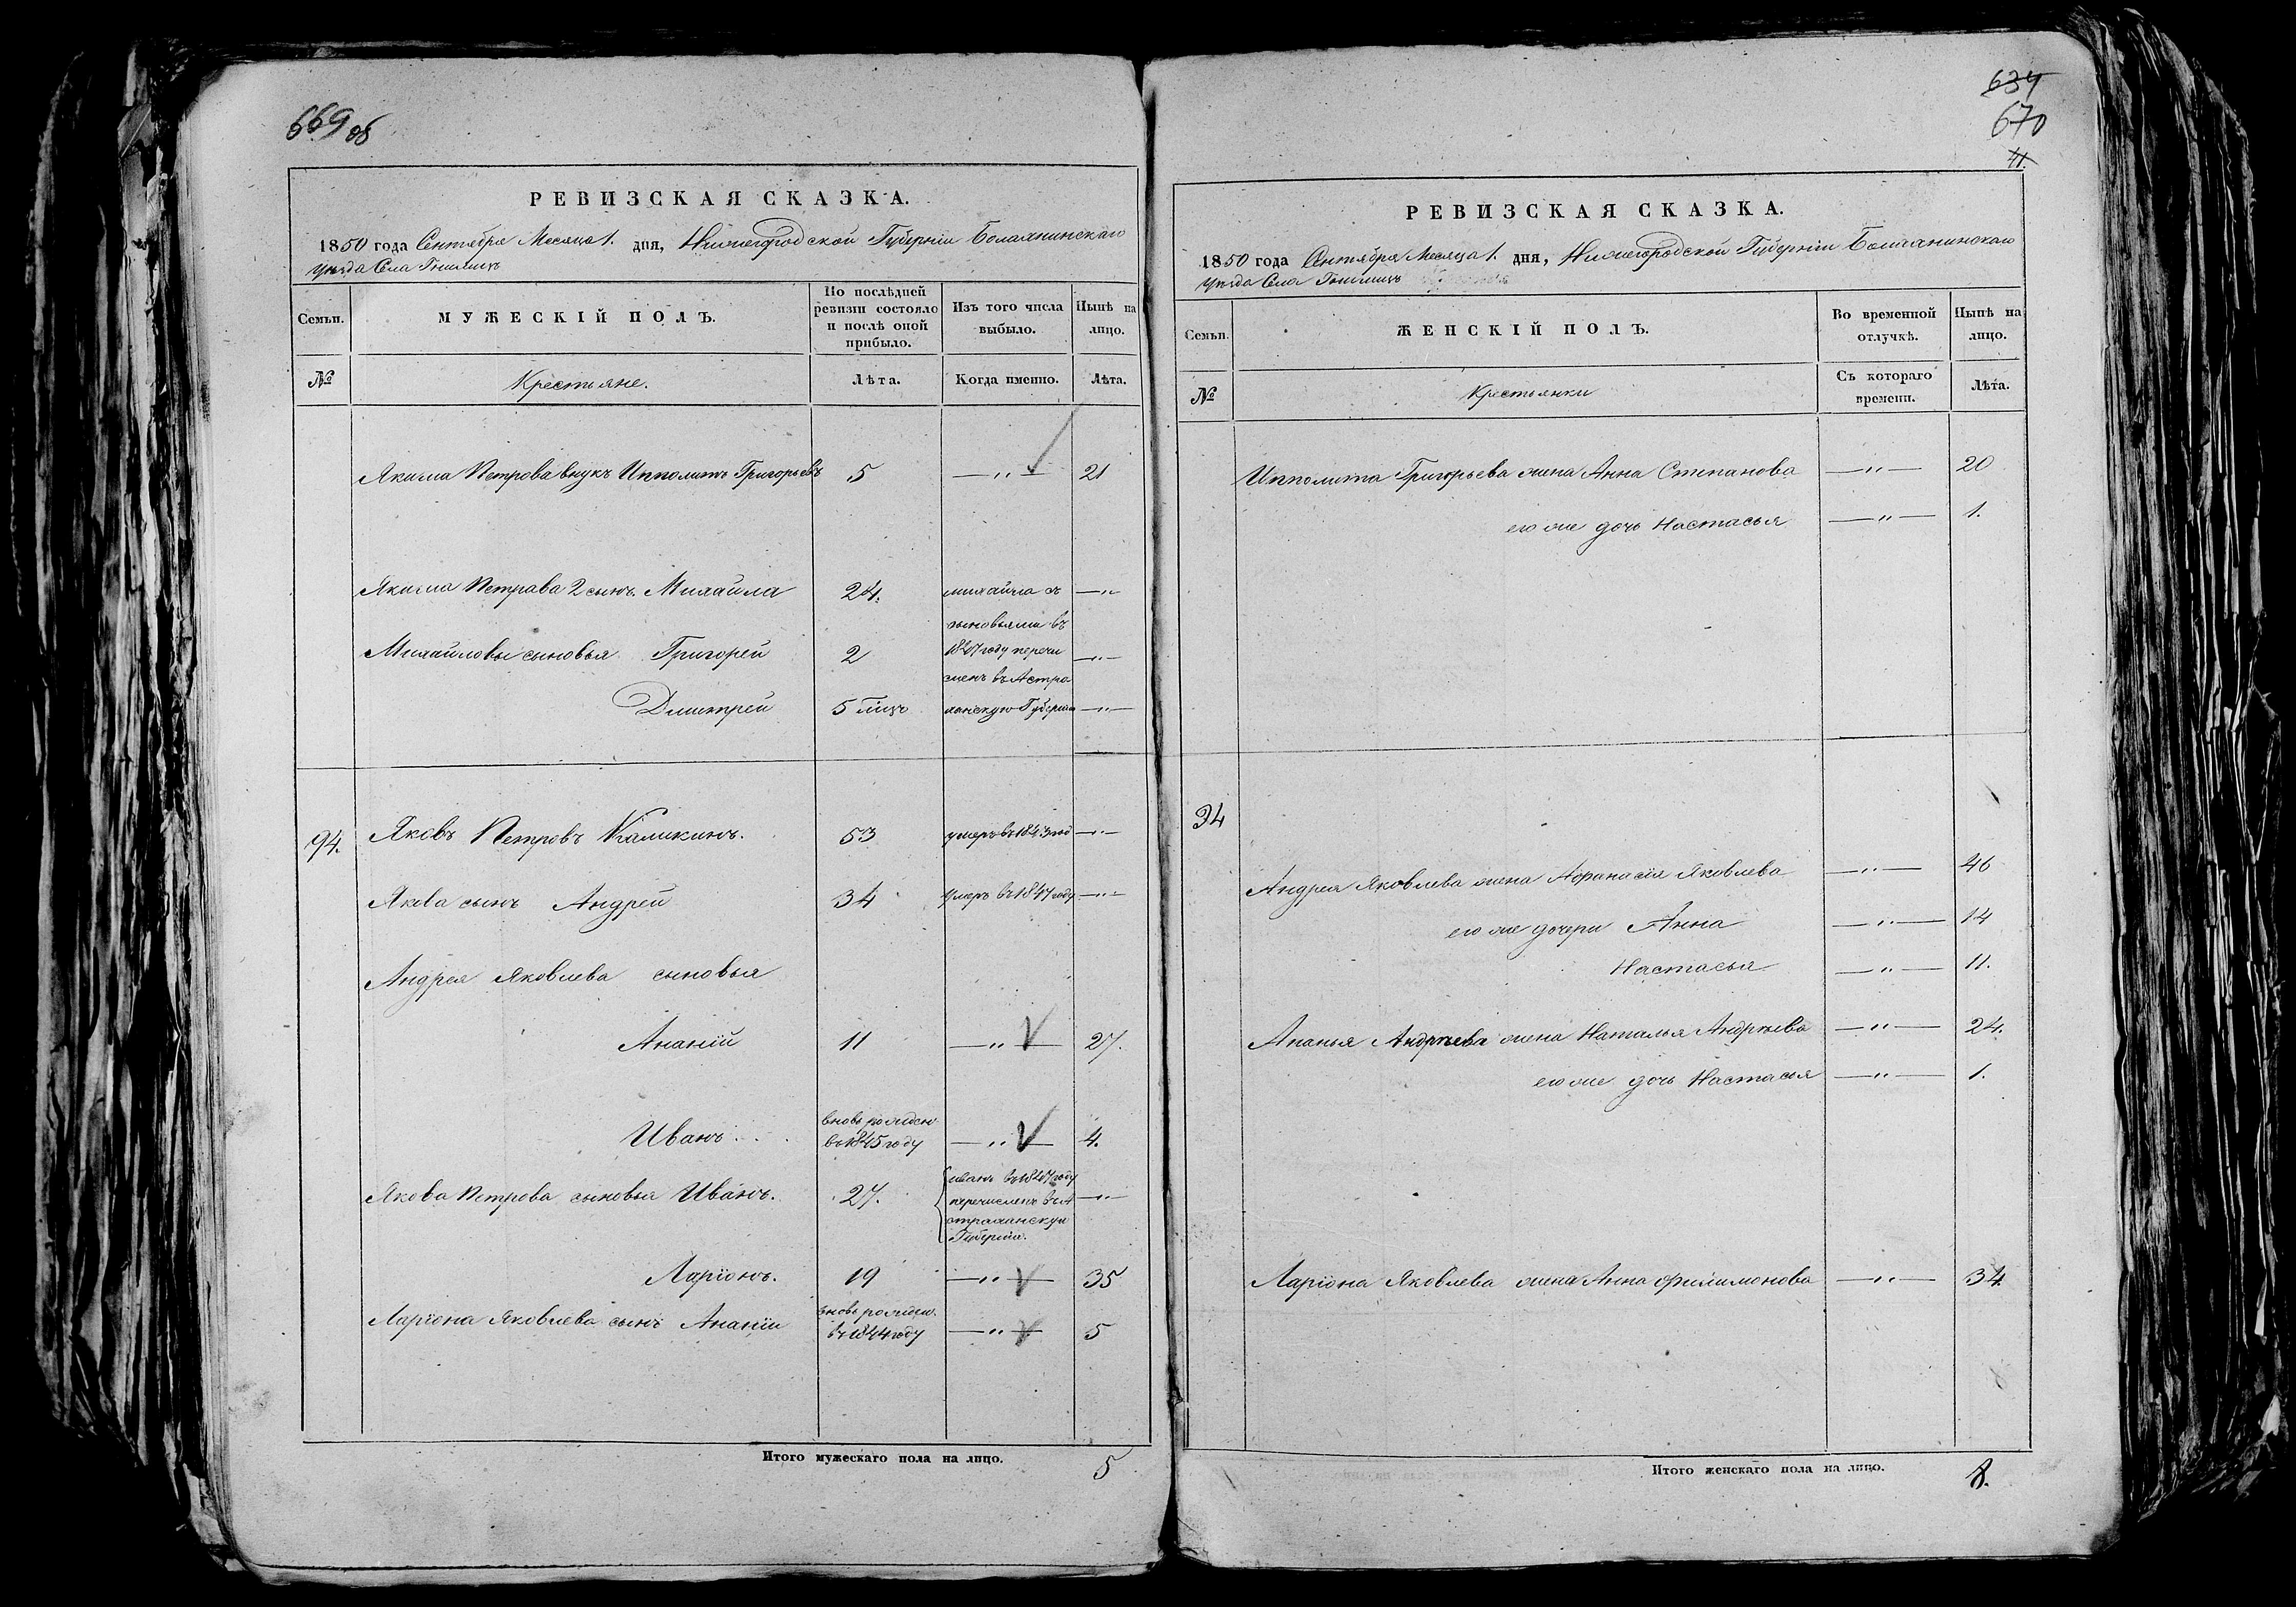 669 об
РЕВИЗСКАЯ СКАЗКА.
1850 года Сентября Месяца 1. дня, Нижегородской Губерніи Болахнинскаго
уѣзда Села Гнилицъ
Семьи. МУЖЕСКІЙ ПОЛЪ. По послѣдней ревизіи состояло и послѣ оной прибыло. Изъ того числа выбыло. Нынѣ на лицо.
№ Крестьяне. Лѣта. Когда именно. Лѣта.
Якима Петрова внукъ Ипполитъ Григорьевъ 5 —"— 21
Якима Петрава 2 сынъ. Михайла 24. михайла съ —"
сыновьями въ
Михайловы сыновья Григорей 2 1847 году перечи —"—
сленъ въ Астра
Дмитрей 5 мцъ ханскую Губернію —"—
94. Яковъ Петровъ Каликинъ. 53 умеръ въ 1843 год —"—
Якова сынъ Андрей 34 умеръ въ 1847 году —"—
Андрея Яковлева сыновья
Ананій 11 —"— 27.
вновь рожден
Иванъ . . . въ 1845 году —"— 4.
иванъ въ 1847 году
Якова Петрова сыновья Иванъ. 27. перечисленъ въ А —"—
страханскую
Губернію.
Ларіонъ. 19 —"— 35
вновь рожден.
Ларіона Яковлева сынъ Ананій въ 1844 году —"— 5
Итого мужескаго пола на лицо. 5
634
670
41.
РЕВИЗСКАЯ СКАЗКА.
1850 года Сентября Месяца 1. дня, Нижегородской Губерніи Болахнинскаго
уѣзда Села Гнилицъ
Семьи. ЖЕНСКІЙ ПОЛЪ. Во временной отлучкѣ. Нынѣ на лицо.
№ Крестьянки Съ котораго времени. Лѣта.
Ипполита Григорьева жена Анна Степанова —"— 20
его же дочь Настасья —"— 1.
94
Андрея Яковлева жена Афанасія Яковлева —"— 46
его же дочери Анна —"— 14
Настасья —"— 11.
Ананья Андрѣева жена Наталья Андрѣева —"— 24.
его же дочь Настасья —"— 1.
Ларіона Яковлева жена Анна Филимонова —"— 34
Итого женскаго пола на лицо. 8.